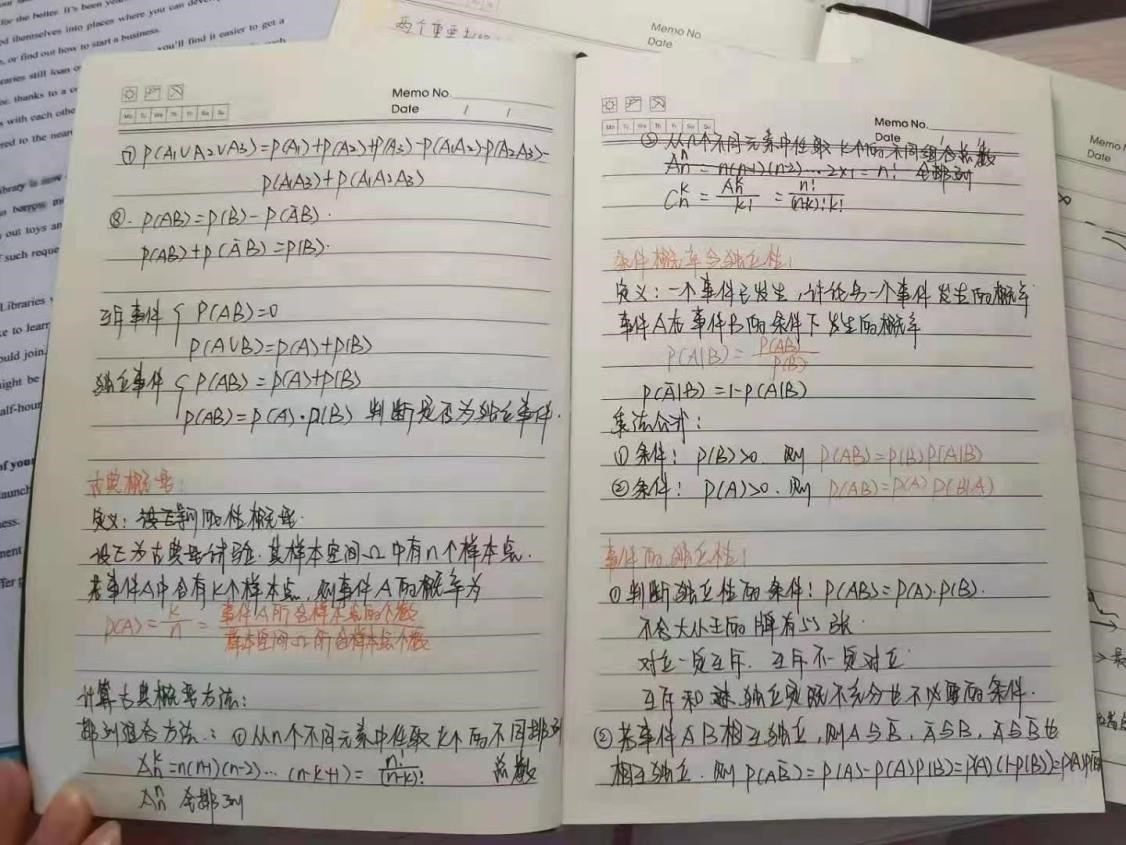 for the better. It's been
themselves into places where you can
, or find out how to start a business.
you'll find it easier to get a
raries still loan
thanks to a
s with each othe
red to the near
brary is now
n borrow
out toys an
such reque
Libraries
ke to learn
ould join.
ight be
alf-hour
of your
launch
ess.
ment
ffer
两个重要
Memo No.
Date
Memo No.
Date / /
Mo Tu We Th Fr Sa Su
⑦ P(A₁∪A₂∪A₃)=P(A₁)+P(A₂)+P(A₃)-P(A₁A₂)-P(A₂A₃)-
P(A₁A₃)+P(A₁A₂A₃)
⑧. P(AB)=P(B)-P(ĀB).
P(AB)+P(ĀB)=P(B).
互斥事件 { P(AB)=0
P(A∪B)=P(A)+P(B)
独立事件 { P(AB)=P(A)+P(B)
P(AB)=P(A)·P(B) 判断是否为独立事件.
古典概型:
定义: 概型.
设E为古典型试验.其样本空间Ω中有n个样本点.
若事件A中含有K个样本点,则事件A的概率为
P(A)=K/n=事件A所含样本点的个数/样本空间Ω所含样本点个数
计算古典概型方法:
排列组合方法: ①从n个不同元素中任取K个的不同排列
Aₙᵏ=n(n-1)(n-2)…(n-k+1)=n!/(n-k)! 总数
Aₙⁿ 全排列
Memo No.
Date
Mo Tu We Th Fr Sa Su
②从n个不同元素中任取K个的不同组合总数
Aₙⁿ=n(n-1)(n-2)…2×1=n! 全排列
Cₙᵏ=Aₙᵏ/k!=n!/(n-k)!k!
条件概率与独立性:
定义:一个事件已发生,讨论另一个事件发生的概率
事件A在事件B的条件下发生的概率
P(A|B)=P(AB)/P(B)
P(Ā|B)=1-P(A|B)
乘法公式:
①条件: P(B)>0. 则 P(AB)=P(B)P(A|B)
②条件: P(A)>0. 则 P(AB)=P(A)P(B|A)
事件的独立性:
①判断独立性的条件: P(AB)=P(A)·P(B).
不含大小王的牌有52张.
对立一定互斥. 互斥不一定对立
互斥和独立是既不充分也不必要的条件.
②若事件AB相互独立,则A与B̄,Ā与B,Ā与B̄也
相互独立. 则P(AB̄)=P(A)-P(A)P(B)=P(A)(1-P(B))=P(A)P(B̄)
Memo
Date